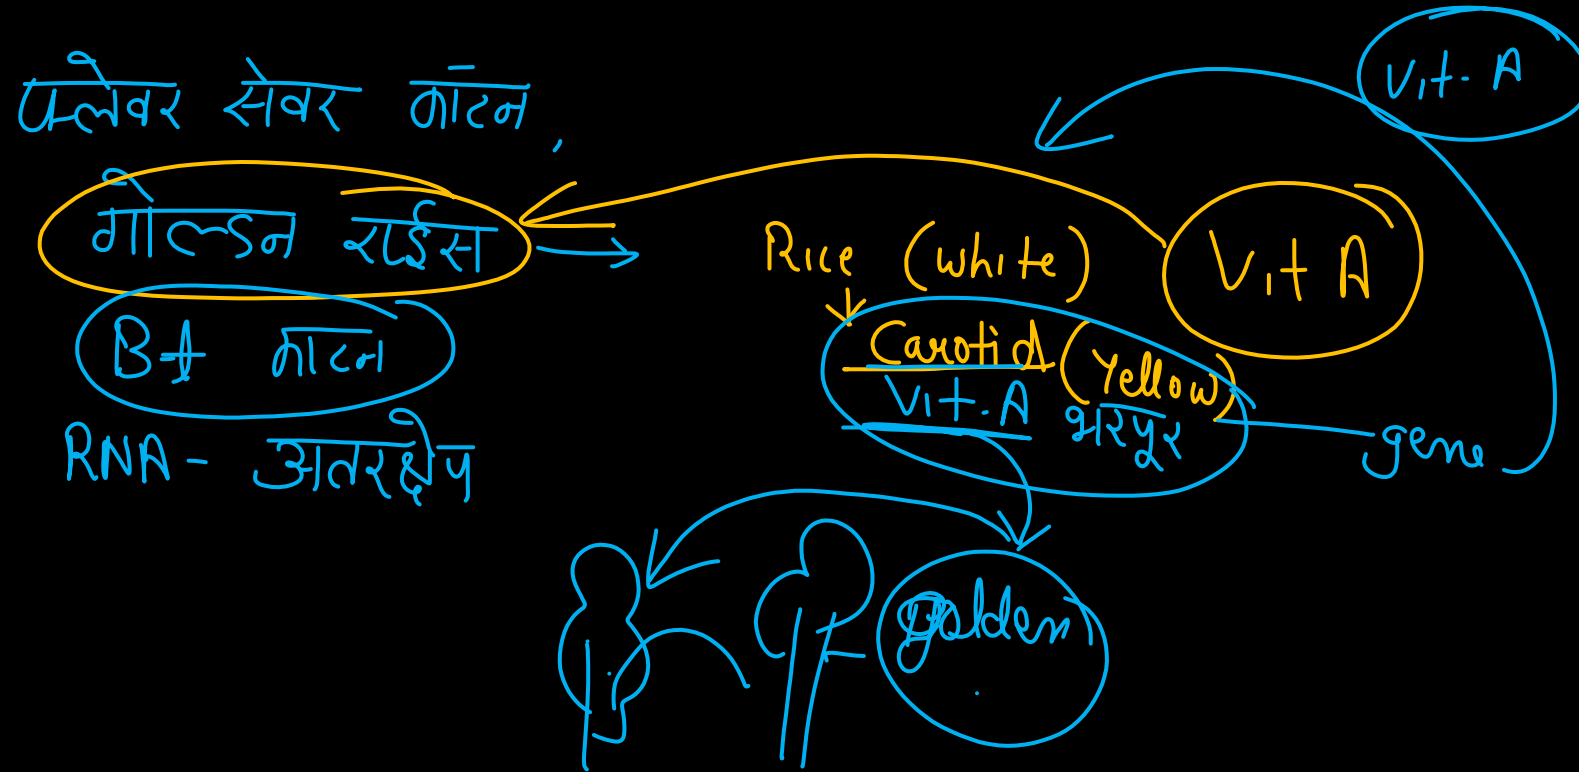 फ्लेवर सेवर कॉटन,
गोल्डन राईस
Bt काटन
RNA - अतरक्षेप
Vit. A
Rice (white)
Vit A
Carotid (Yellow)
Vit. A भरपूर
gene
golden